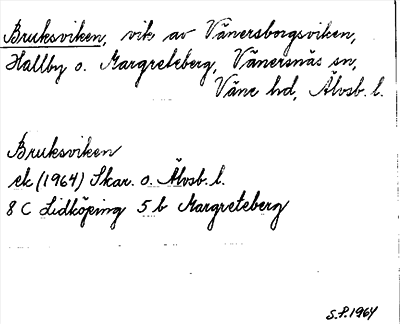 Bruksviken, vik av Vänersborgsviken,
Hallby o. Margreteberg, Vänersnäs sn,
Väne hd, Älvsb. l.
Bruksviken
ek (1964) Skar. o. Älvsb. l.
8 C Lidköping 5 b Margreteberg
S.P. 1964